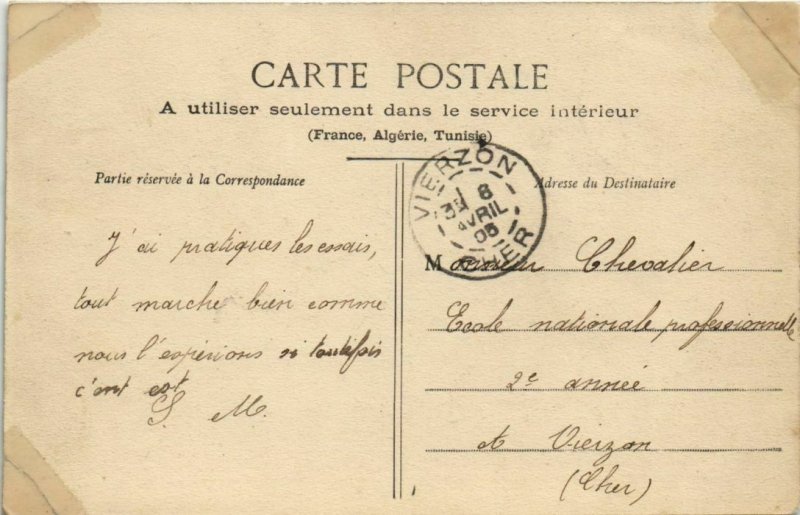 CARTE POSTALE
A utiliser seulement dans le service intérieur
(France, Algérie, Tunisie)
Partie réservée à la Correspondance
Adresse du Destinataire
VIERZON
6
AVRIL
CHER
J'ai pratiques les essais,
tout marche bien comme
nous l'espérions si toutefois
c'ent est
S. M.
Monsieur Chevalier
Ecole nationale professionnelle
2e année
à Vierzon
(Cher)